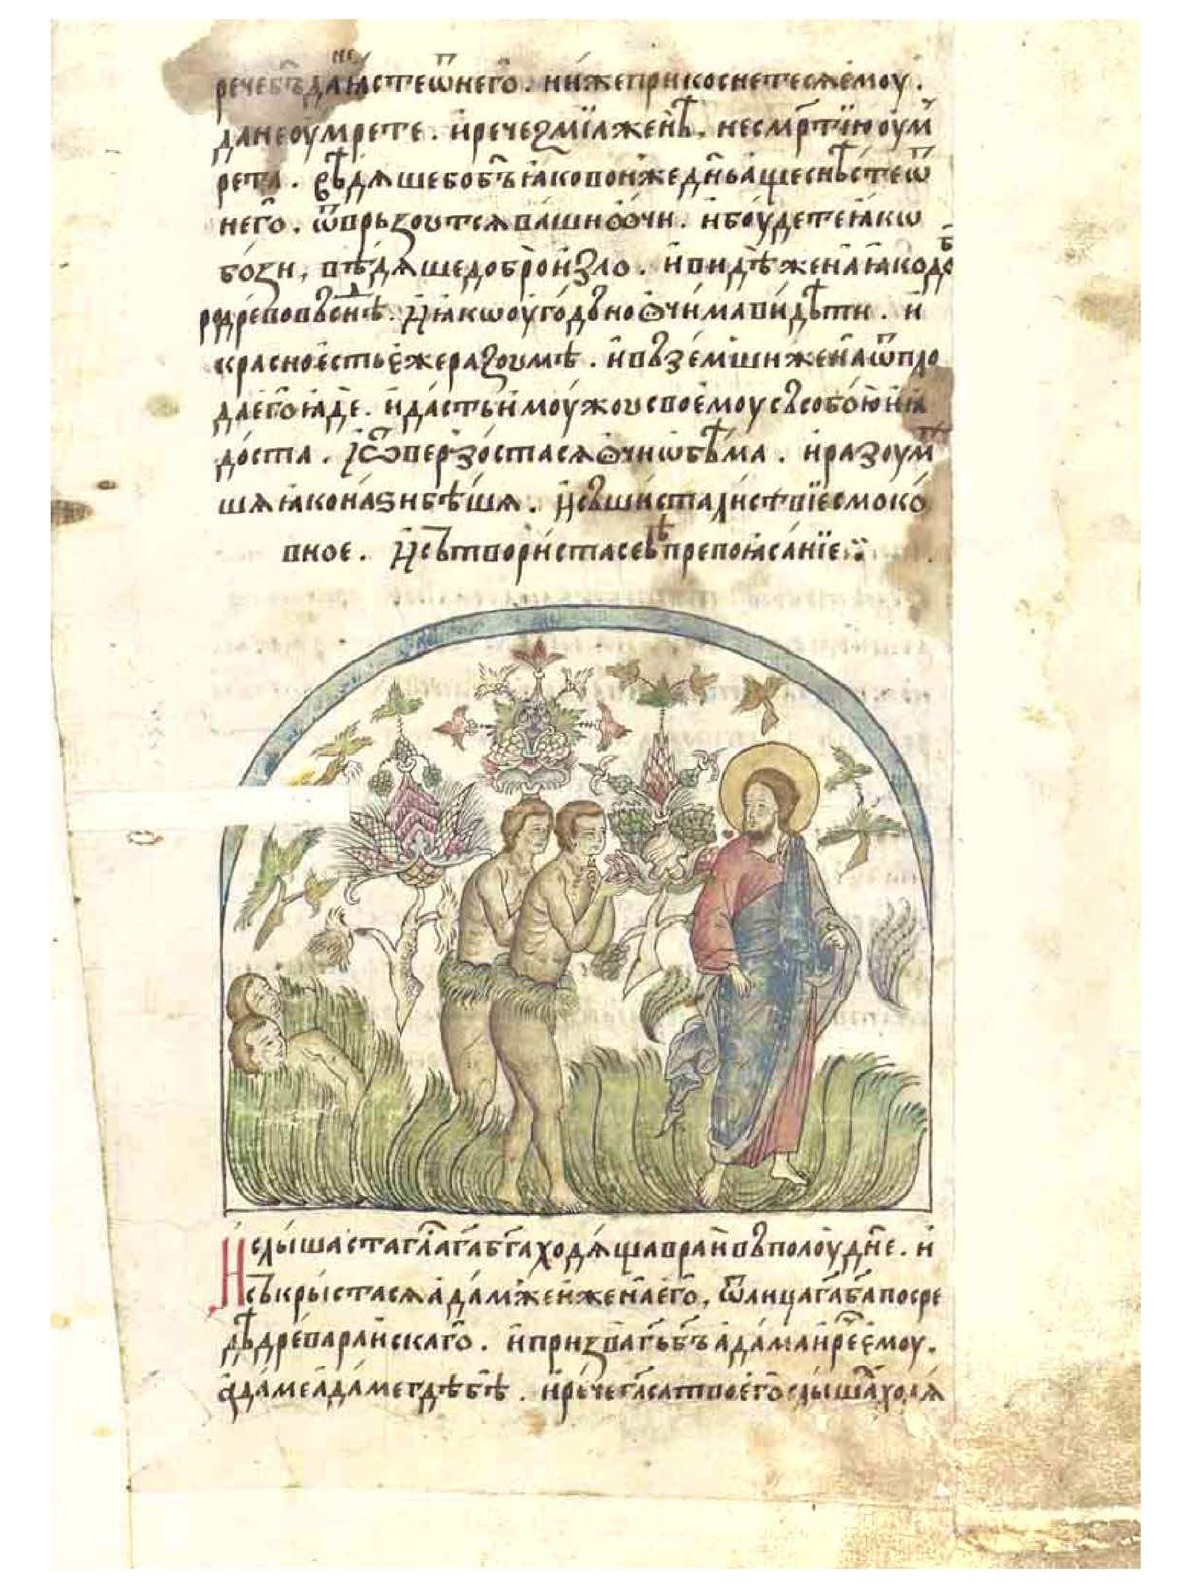 рече бг҃ъ да не ꙗсте ѿ него. ниже прикоснетеся емоу.
да не оумрете. и рече змїа женѣ. не смр҃тїю оум
рета. вѣдяше бо бг҃ъ ꙗко вонже дн҃ь аще снѣсте ѿ
него. ѿврьзоутся ваши очи. и боудете ꙗкѡ
бози, вѣдяще добро и зло. и видѣ жена ꙗко доб
ро древо въ снѣд. и ꙗкѡ оугодьно очима видѣти. и
красно есть еже разоумѣ. и въземши жена ѿ пло
да его ꙗде. и дасть и моужоу своемоу съ собою и ꙗ
доста. и ѿверзостася очи ѡбѣма. и разоумѣ
шя ꙗко наѕи бѣшя. и съшиста листвїе смоко
вное. и сътвориста себѣ препоꙗсанїе
И слышаста гла҃ га҃ бг҃а ходяща в раи в полоудн҃е. и
съкрыстася адам же и жена его, ѿ лица га҃ ба҃ посре
дѣ древа раискаго. и призва гь҃ бъ҃ адама и рч҃е емоу.
адаме адаме где бѣ. и рьче гл҃са твоего слышах ходя